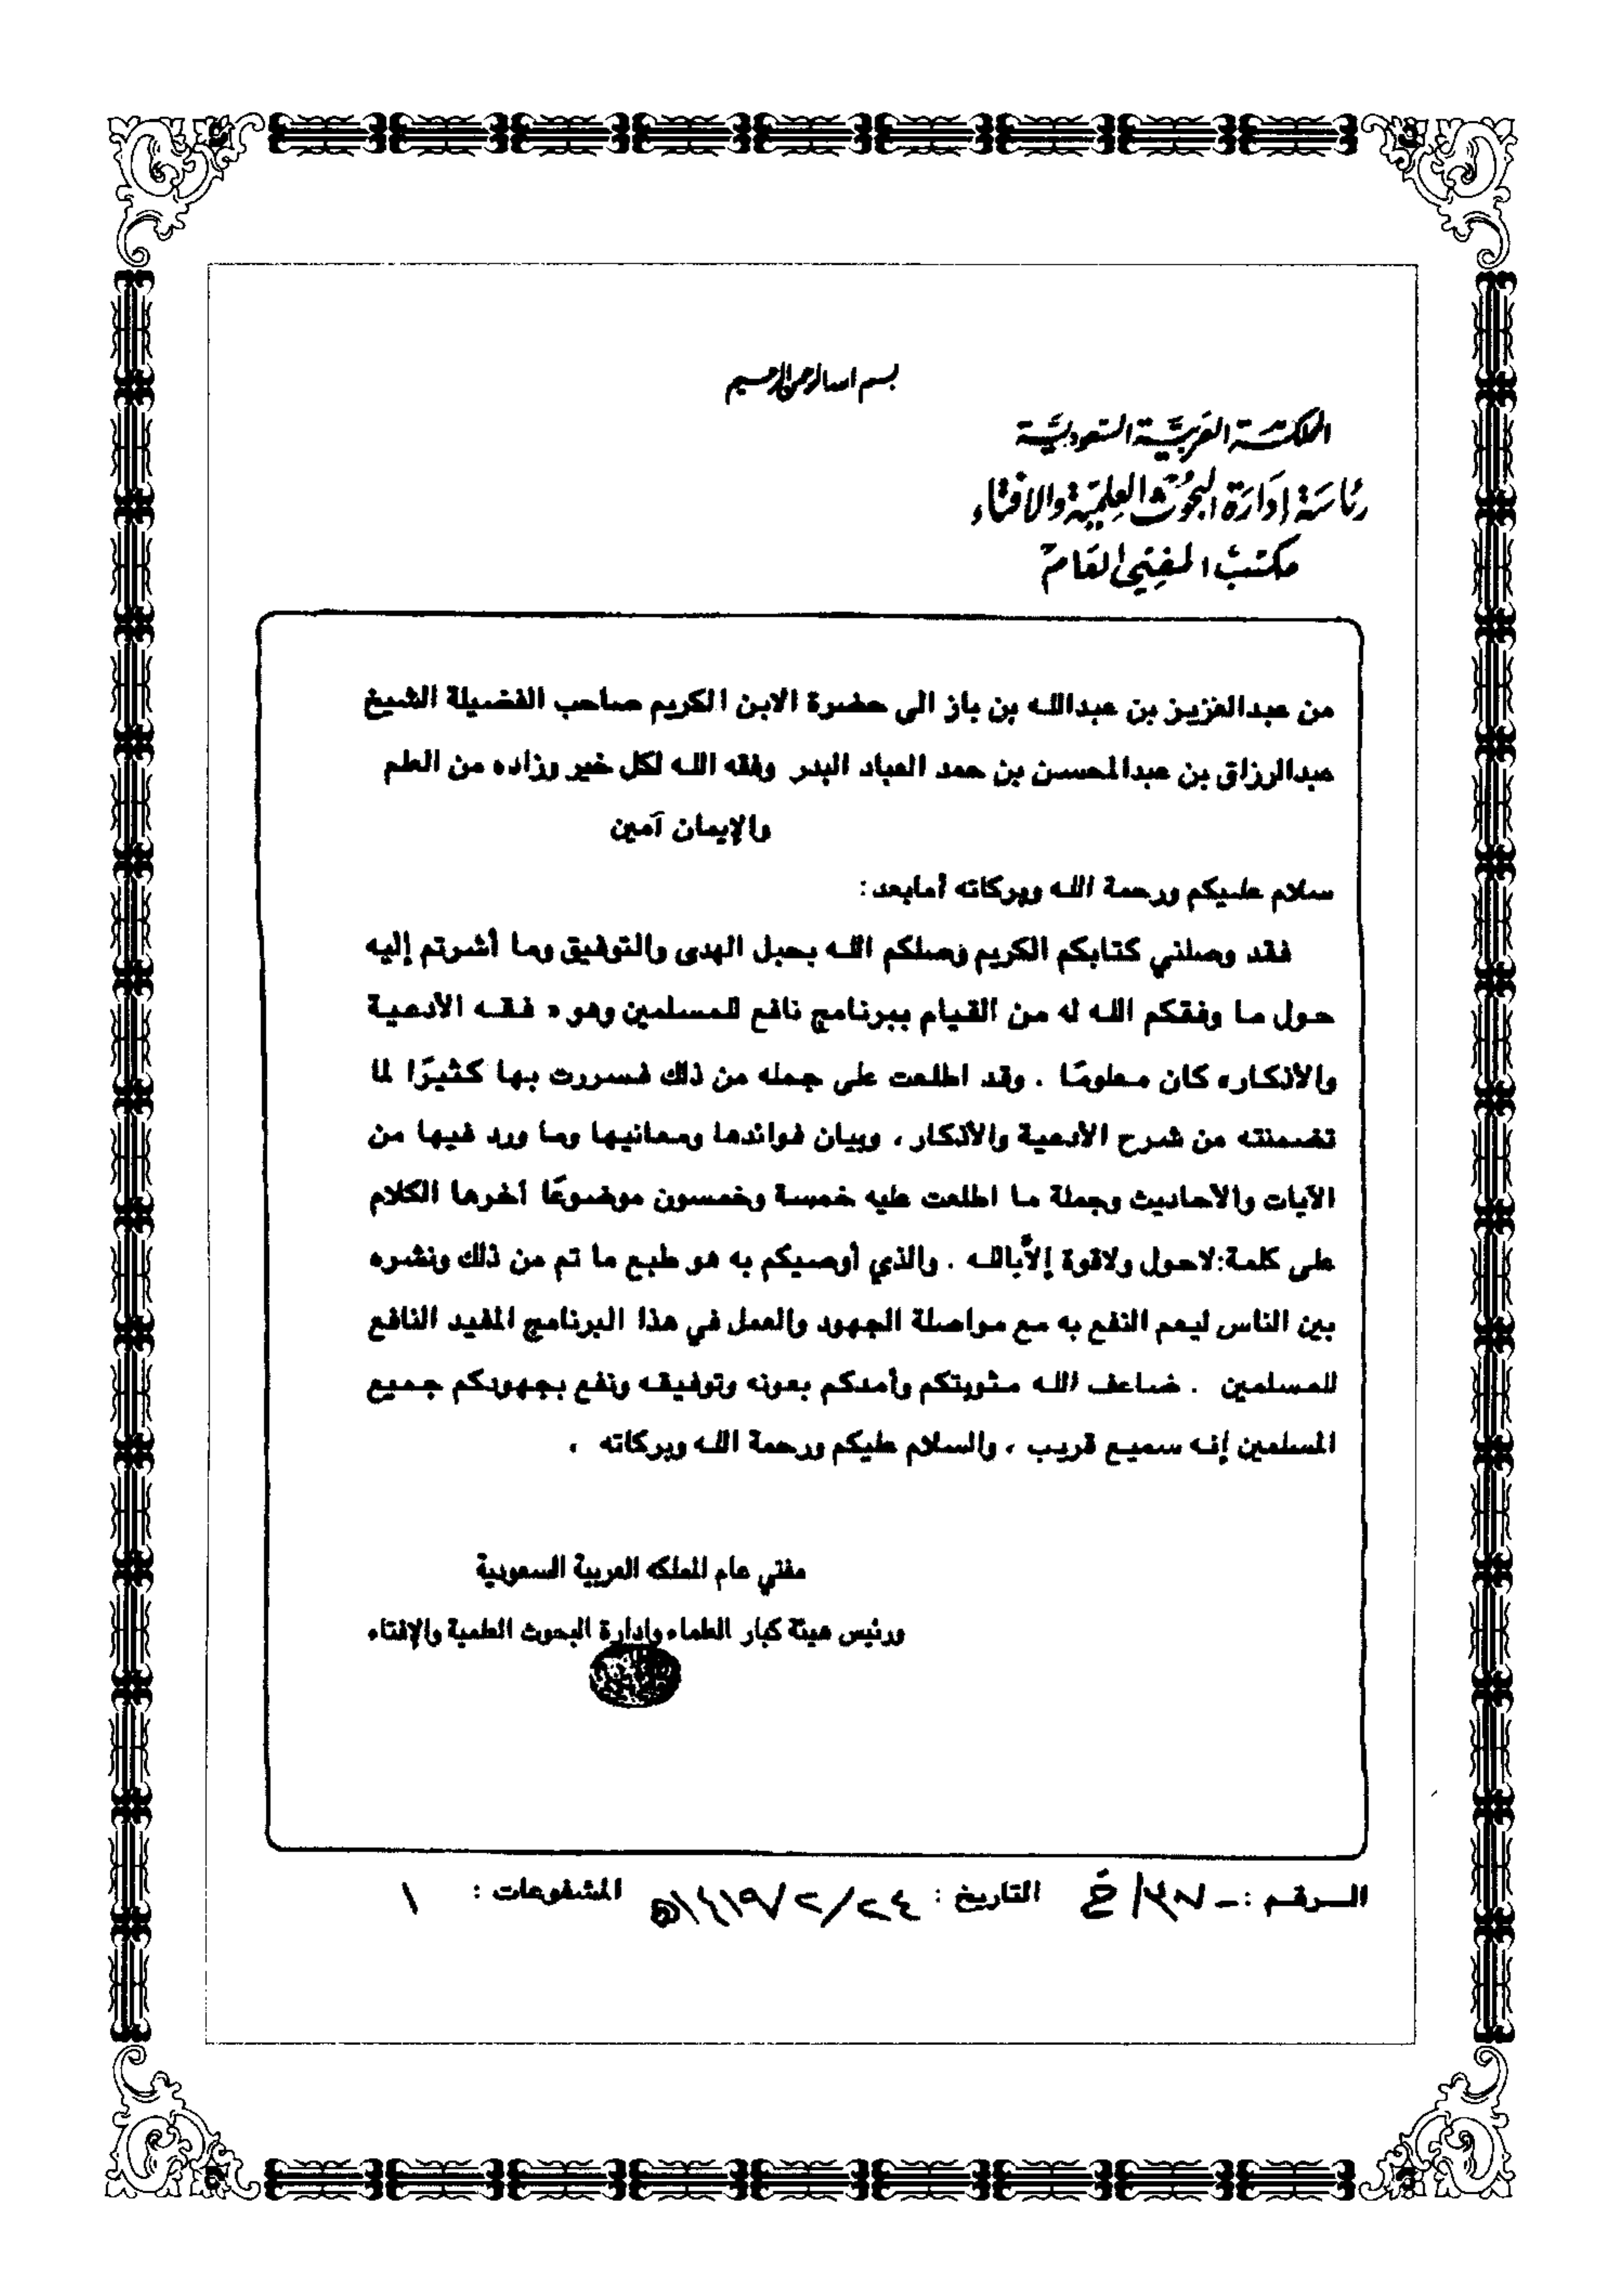 بسم الله الرحمن الرحيم
المملكة العربية السعودية
رئاسة إدارة البحوث العلمية والافتاء
مكتب المفتي العام
من عبدالعزيز بن عبدالله بن باز الى حضرة الابن الكريم صاحب الفضيلة الشيخ
عبدالرزاق بن عبدالمحسن بن حمد العباد البدر وفقه الله لكل خير وزاده من العلم
والإيمان آمين
سلام عليكم ورحمة الله وبركاته أمابعد :
فقد وصلني كتابكم الكريم وصلكم الله بحبل الهدى والتوفيق وما أشرتم إليه
حول ما وفقكم الله له من القيام ببرنامج نافع للمسلمين وهو « فقه الأدعية
والأذكار» كان معلومًا . وقد اطلعت على جمله من ذلك فسررت بها كثيرًا لما
تضمنته من شرح الأدعية والأذكار ، وبيان فوائدها ومعانيها وما ورد فيها من
الآيات والأحاديث وجملة ما اطلعت عليه خمسة وخمسون موضوعًا أخرها الكلام
على كلمة:لاحول ولاقوة إلاَّبالله . والذي أوصيكم به هو طبع ما تم من ذلك ونشره
بين الناس ليعم النفع به مع مواصلة الجهود والعمل في هذا البرنامج المفيد النافع
للمسلمين . ضاعف الله مثوبتكم وأمدكم بعونه وتوفيقه ونفع بجهودكم جميع
المسلمين إنه سميع قريب ، والسلام عليكم ورحمة الله وبركاته ،
مفتي عام المملكه العربية السعودية
ورئيس هيئة كبار العلماء وإدارة البحوث العلمية والإفتاء
الرقم : التاريخ : المشفوعات : ١